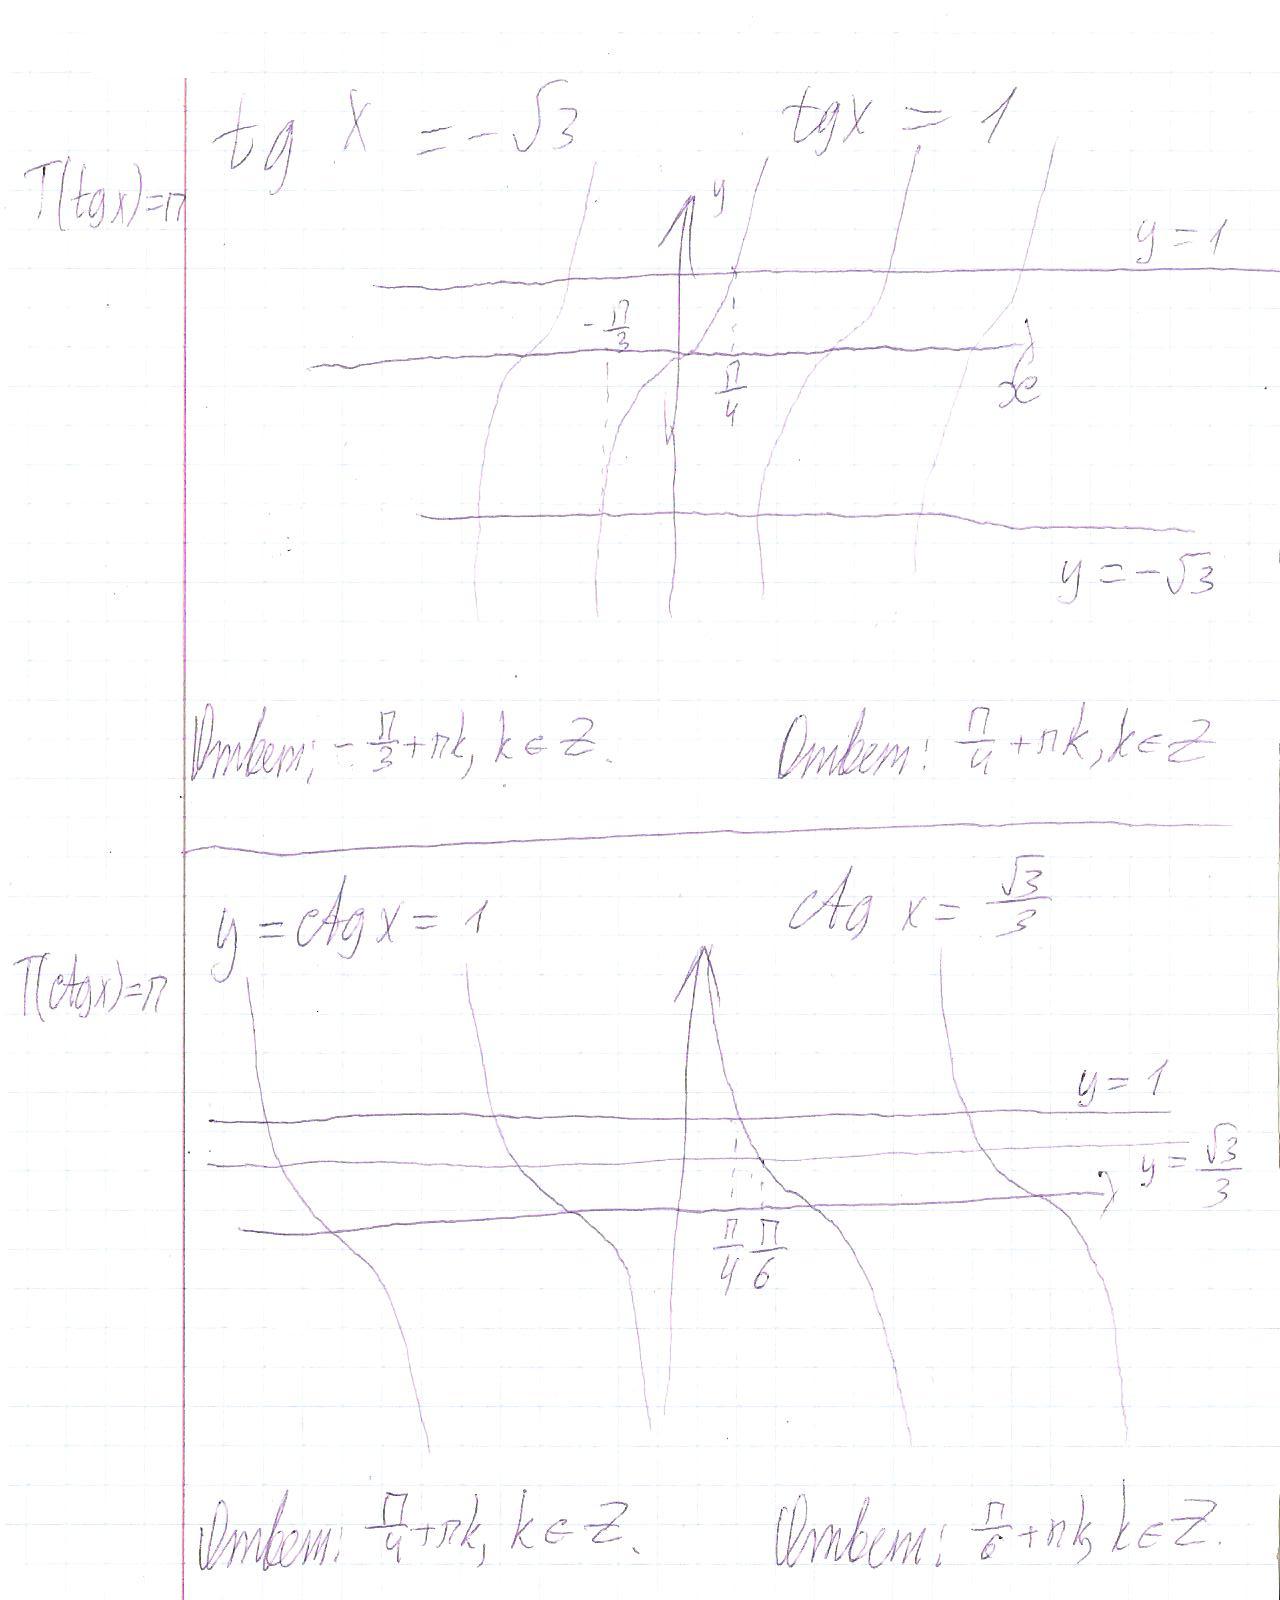 tg x = -√3
tgx = 1
T(tgx)=π
y
y = 1
-π/3
π/4
x
y = -√3
Ответ: -π/3+πk, k∈Z.
Ответ: π/4+πk, k∈Z
y = ctg x = 1
ctg x = √3/3
T(ctgx)=π
y = 1
y = √3/3
π/4 π/6
Ответ: π/4+πk, k∈Z.
Ответ: π/6+πk, k∈Z.